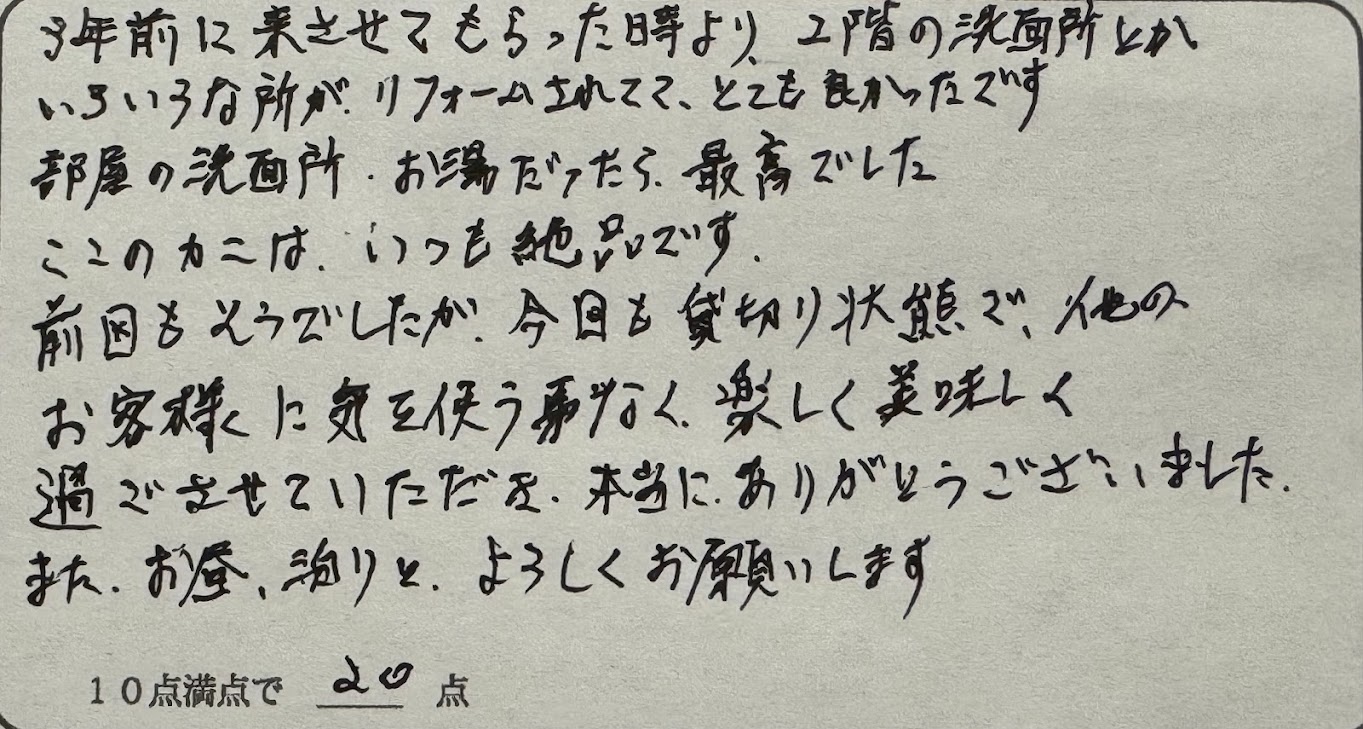 3年前に来させてもらった時より、2階の洗面所とか
いろいろな所が、リフォームされてて、とても良かったです
部屋の洗面所、お湯だったら、最高でした
ここのカニは、いつも絶品です。
前回もそうでしたが、今回も貸切り状態で、他の
お客様に気を使う事なく、楽しく美味しく
過ごさせていただき、本当に、ありがとうございました。
また、お昼、泊りと、よろしくお願いします
10点満点で 20 点